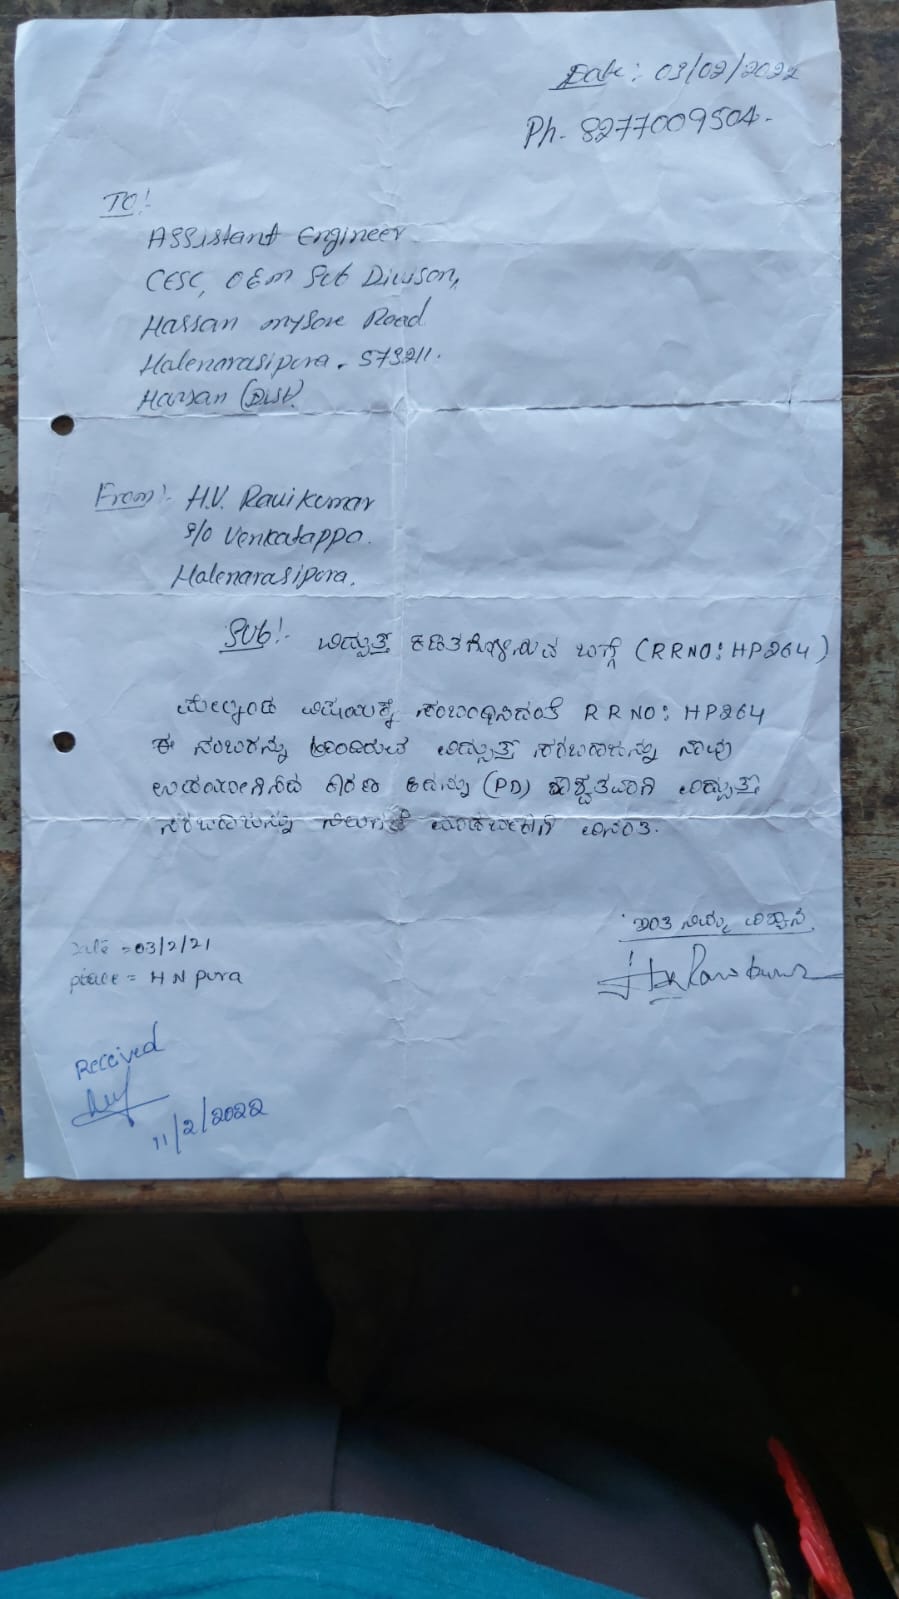 Date: 03/02/2022
Ph- 8277009504.
TO:-
Assistant Engineer
CESC, O&m Sub Divison,
Hassan mysore Road
Holenarasipura. 573211.
Hassan (Dist).
From:- H.V. Ravikumar
S/o Venkatappa.
Holenarasipura.
Sub:- ವಿದ್ಯುತ್ತ ಕಡಿತಗೊಳಿಸುವ ಬಗ್ಗೆ (RRNO: HP264)
ಮೇಲ್ಕಂಡ ವಿಷಯಕ್ಕೆ ಸಂಬಂಧಿಸಿದಂತೆ RRNO: HP264
ಈ ನಂಬರನ್ನು ಹೊಂದಿರುವ ವಿದ್ಯುತ್ತ ಸರಬರಾಜನ್ನು ನಾವು
ಉಪಯೋಗಿಸಿದ ಕಾರಣ ಇದನ್ನು (PD) ಶಾಶ್ವತವಾಗಿ ವಿದ್ಯುತ್ತ
ಸರಬರಾಜನ್ನು ನಿಲುಗಡೆ ಮಾಡಬೇಕಾಗಿ ವಿನಂತಿ.
ಇಂತಿ ನಿಮ್ಮ ವಿಶ್ವಾಸಿ
Date = 03/2/21
place = H N pura
Received
11/2/2022